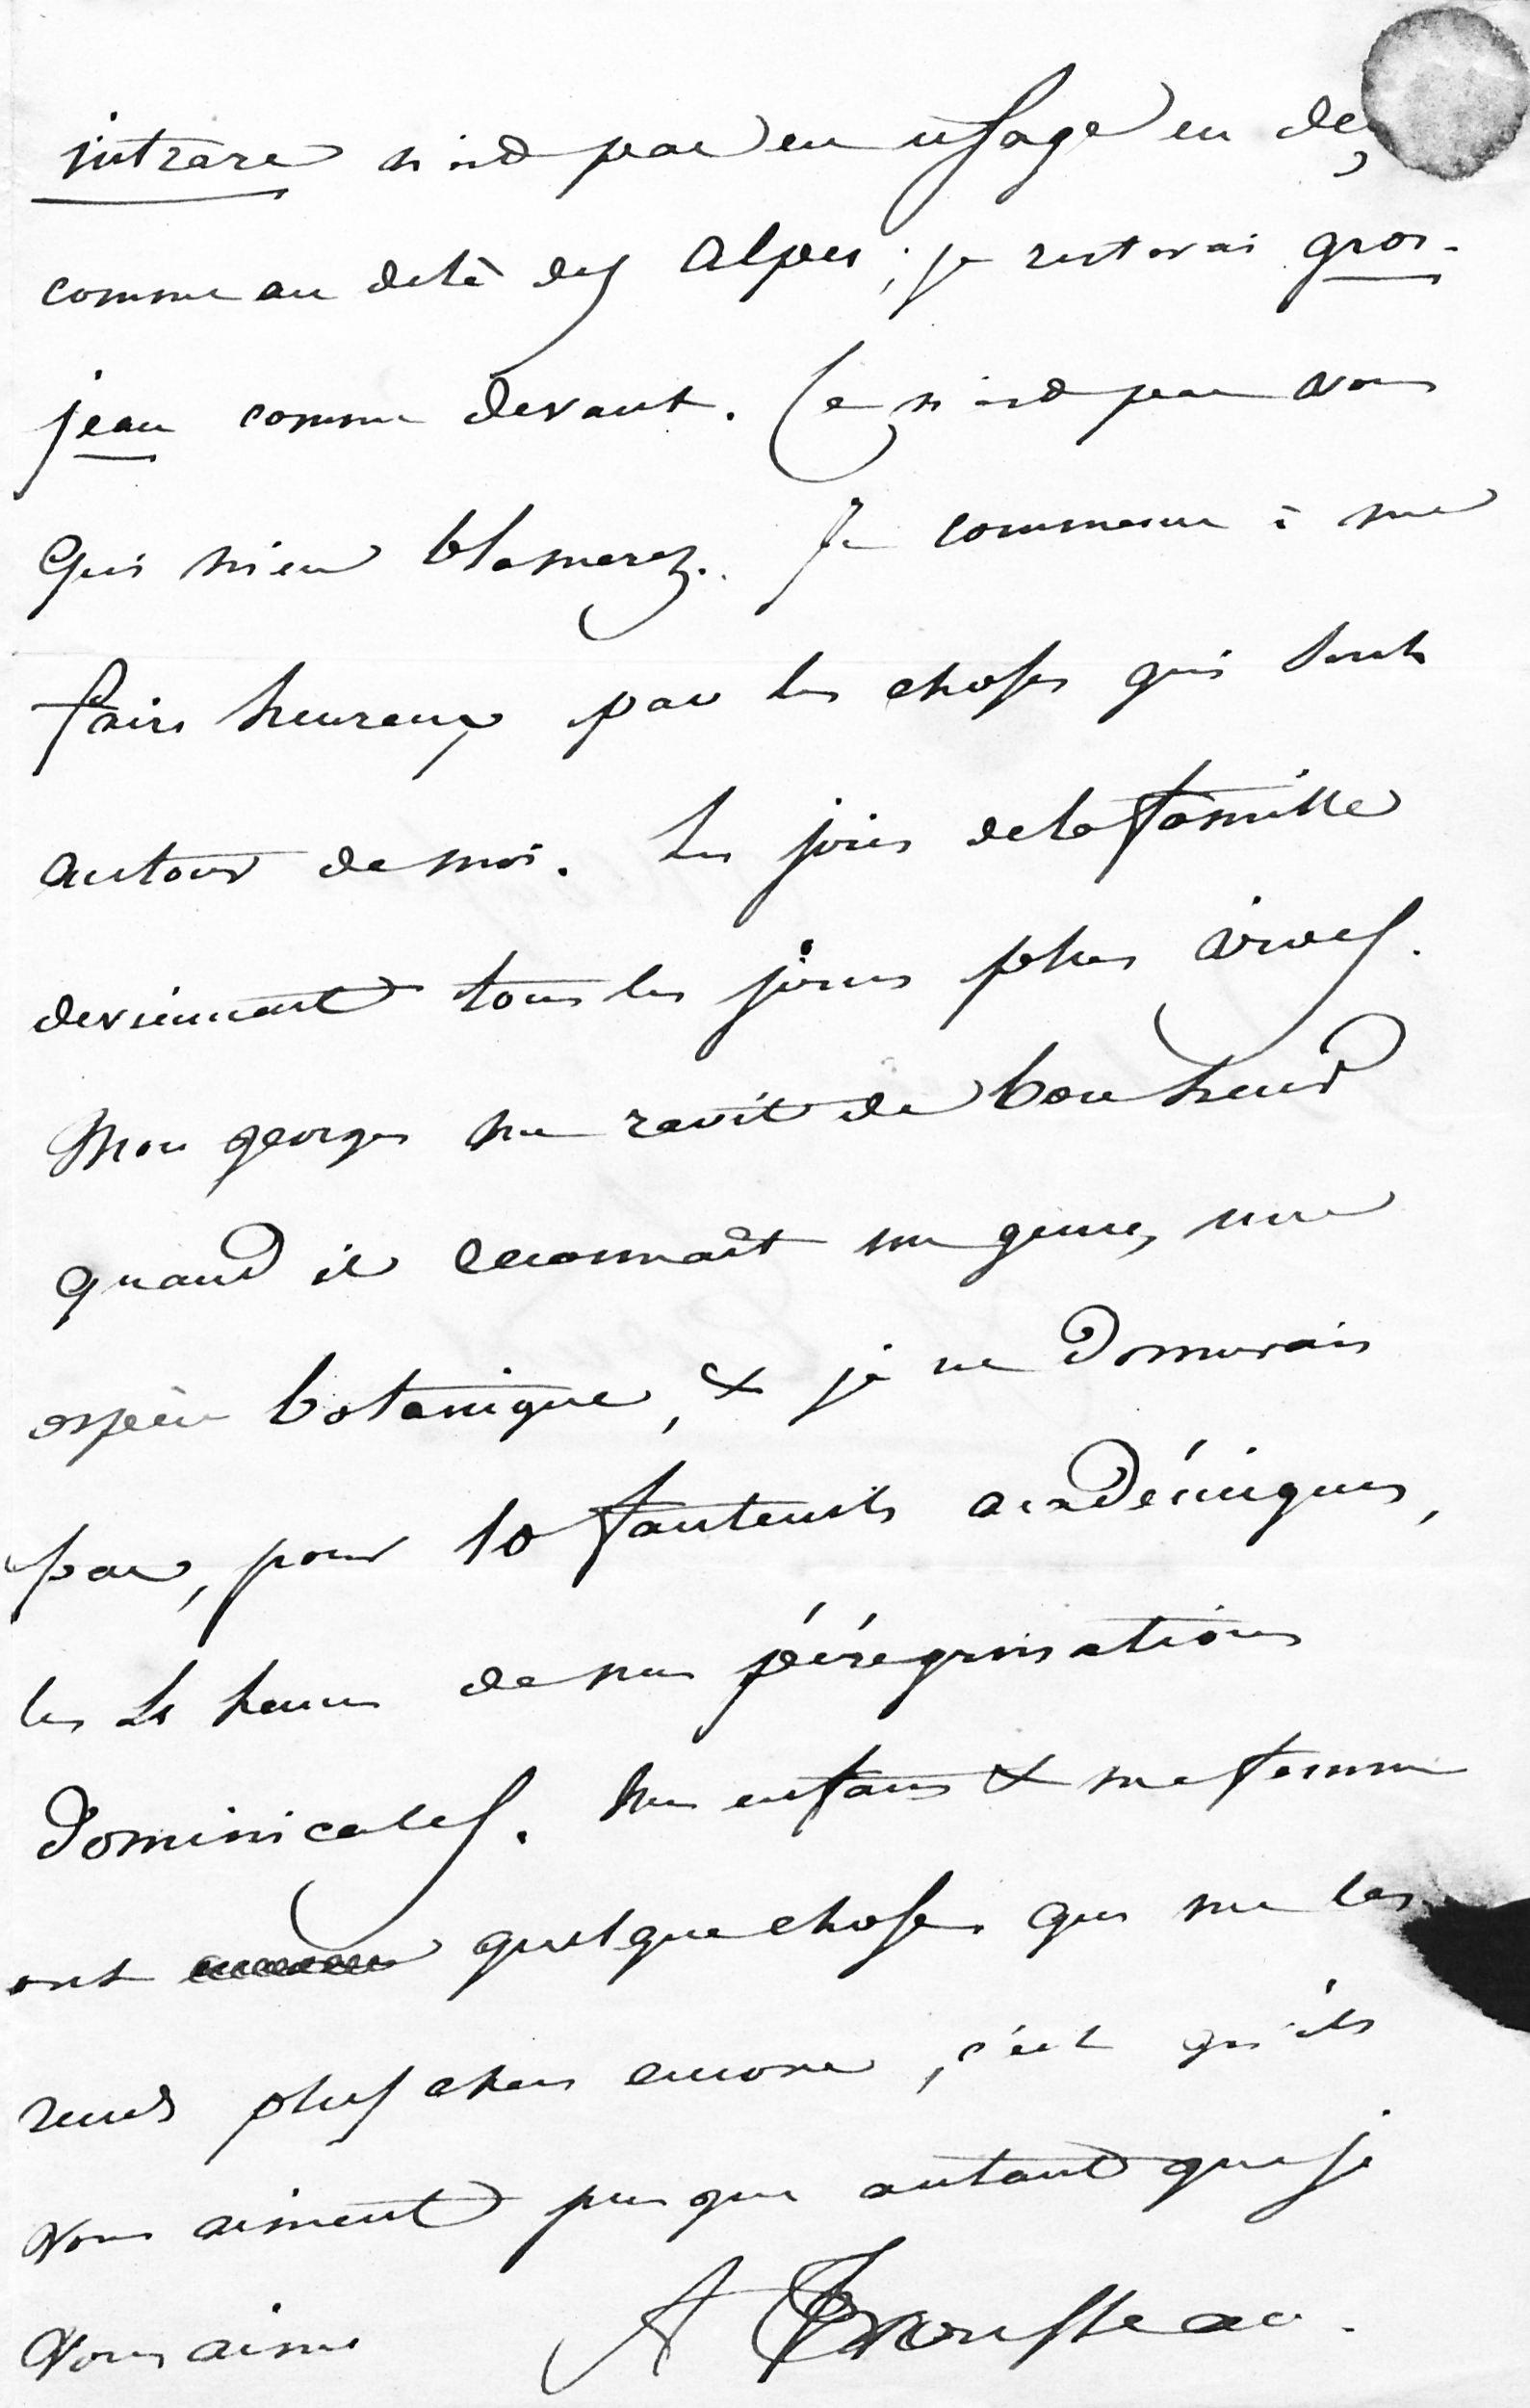 intrare n'est pas en usage en deç
comme au delà des Alpes; je resterai gros-
jean comme devant. Ce n'est pas vous
qui m'en blamerez. Je commence à me
faire heureux par les choses qui sont
autour de moi. Les joies de la famille
deviennent tous les jours plus vives.
Mon georges me ravit de bonheur
quand il reconnaît un genre, une
espèce botanique, & je ne donnerais
pas, pour 10 fauteuils académiques,
les heures de nos pérégrinations
dominicales. Mes enfans & ma femme
ont quelque chose qui me les
rend plus chers encore, c'est qu'ils
vous aiment presque autant que je
vous aime A Trousseau.